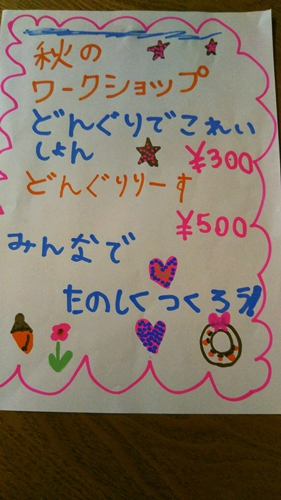 秋の
ワークショップ
どんぐりでこれい
しょん
¥300
どんぐりりーす
¥500
みんなで
たのしくつくろう